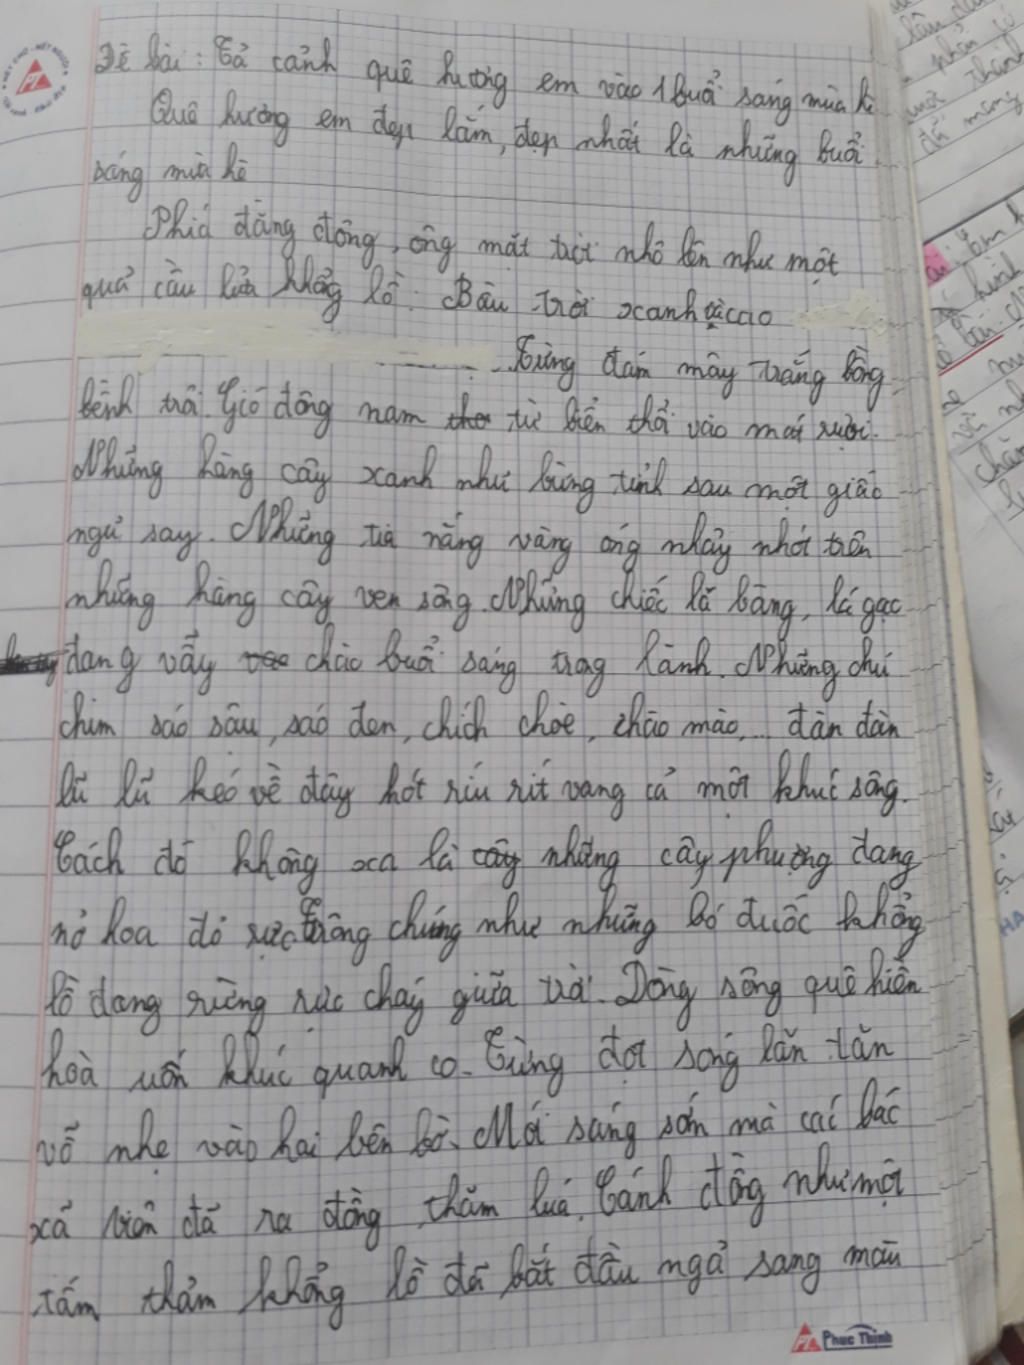 Đề bài: Tả cảnh quê hương em vào 1 buổi sáng mùa hè
Quê hương em đẹp lắm, đẹp nhất là những buổi
sáng mùa hè
Phiá đằng đông, ông mặt trời nhô lên như một
quả cầu lửa khổng lồ. Bầu trời xanh và cao
Từng đám mây trắng bồng
bềnh trôi. Gió đông nam từ biển thổi vào mát rượi.
Những hàng cây xanh như bừng tỉnh sau một giấc
ngủ say. Những tia nắng vàng óng nhảy nhót trên
những hàng cây ven sông. Những chiếc lá bàng, lá gạc
đang vẫy chào buổi sáng trong lành. Những chú
chim sáo sậu, sáo đen, chích chòe, chào mào,... đàn đàn
lũ lũ kéo về đây hót ríu rít vang cả một khúc sông.
Cách đó không xa là những cây phượng đang
nở hoa đỏ rực trông chúng như những bó đuốc khổng
lồ đang rừng rực cháy giữa trời. Dòng sông quê hiền
hoà uốn khúc quanh co. Từng đợt sóng lăn tăn
vỗ nhẹ vào hai bên bờ. Mới sáng sớm mà các bác
xã viên đã ra đồng thăm lúa. Cánh đồng như một
tấm thảm khổng lồ đã bắt đầu ngả sang màu
Phuc Thinh